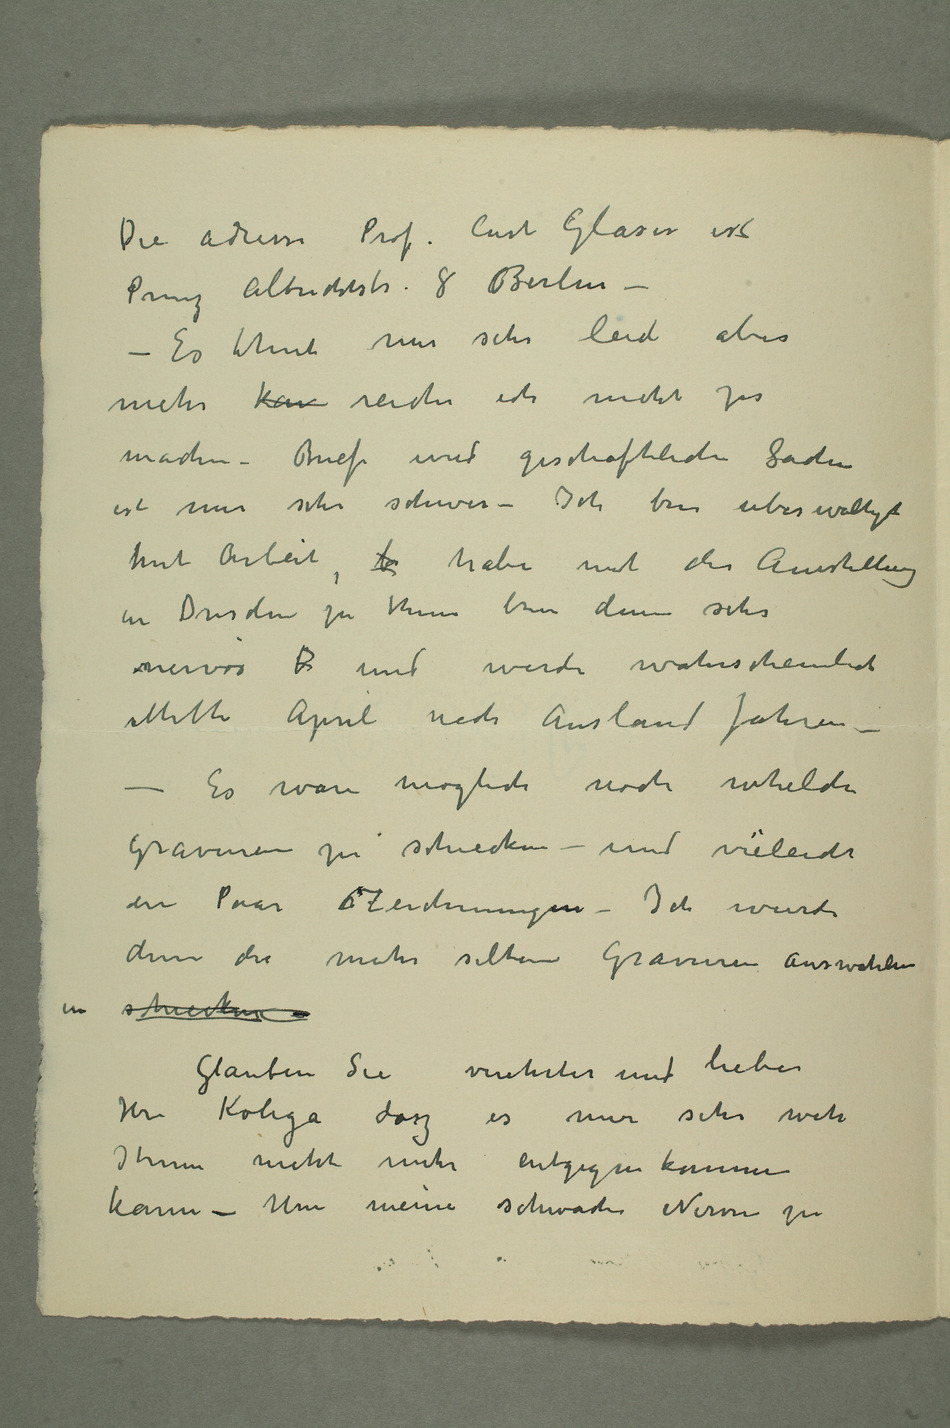 Die adresse Prof. Curt Glaser ist
Prinz Albrechtstr. 8 Berlin –
– Es thut mir sehr leid aber
mehr kan reiche ich nicht zu
machen – Briefe und geschaftliche Sachen
ist mir sehr schwer – Ich bin uberwältigt
mit Arbeit, habe mit der Austellung
in Dresden zu thun bin denn sehr
nervös und werde wahrscheinlich
Mitte April nach Ausland fahren –
– Es wäre moglich noch whelche
Gravuren zu schiecken – und vieleicht
ein Paar Zeichnungen – Ich wurde
denn die mehr seltene Gravuren auswahlen
en schiecken –
Glauben Sie verehrter und lieber
Hr Kollega dasz es mir sehr weh
Ihnen nicht mehr entgegen kommen
kann – Um meine schwache Nerven zu